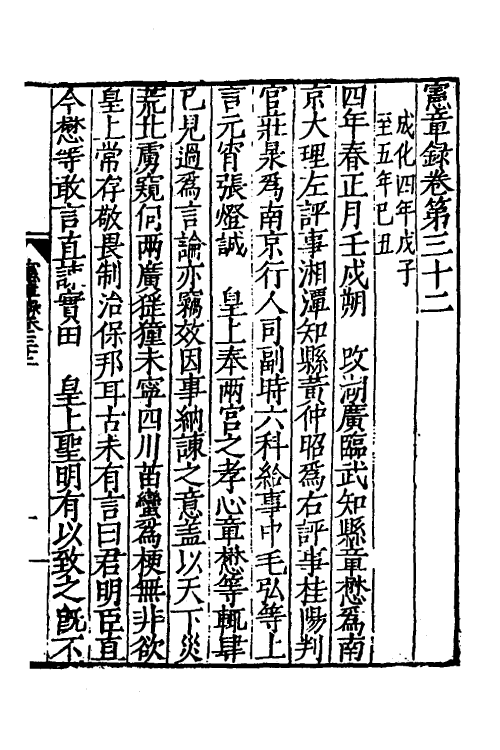 憲章錄卷第三十二
成化四年戊子
至五年己丑
四年春正月壬戌朔　改湖廣臨武知縣章懋為南
京大理左評事湘潭知縣黃仲昭為右評事桂陽判
官莊㫤為南京行人司副時六科給事中毛弘等上
言元宵張燈誠　皇上奉兩宮之孝心章懋等輒肆
已見過為言論亦竊效因事納諫之意盖以天下災
荒北虜窺伺兩廣猺獞未寧四川苗蠻為梗無非欲
皇上常存敬畏制治保邦耳古未有言曰君明臣直
今懋等敢言直諫實由　皇上聖明有以致之旣不